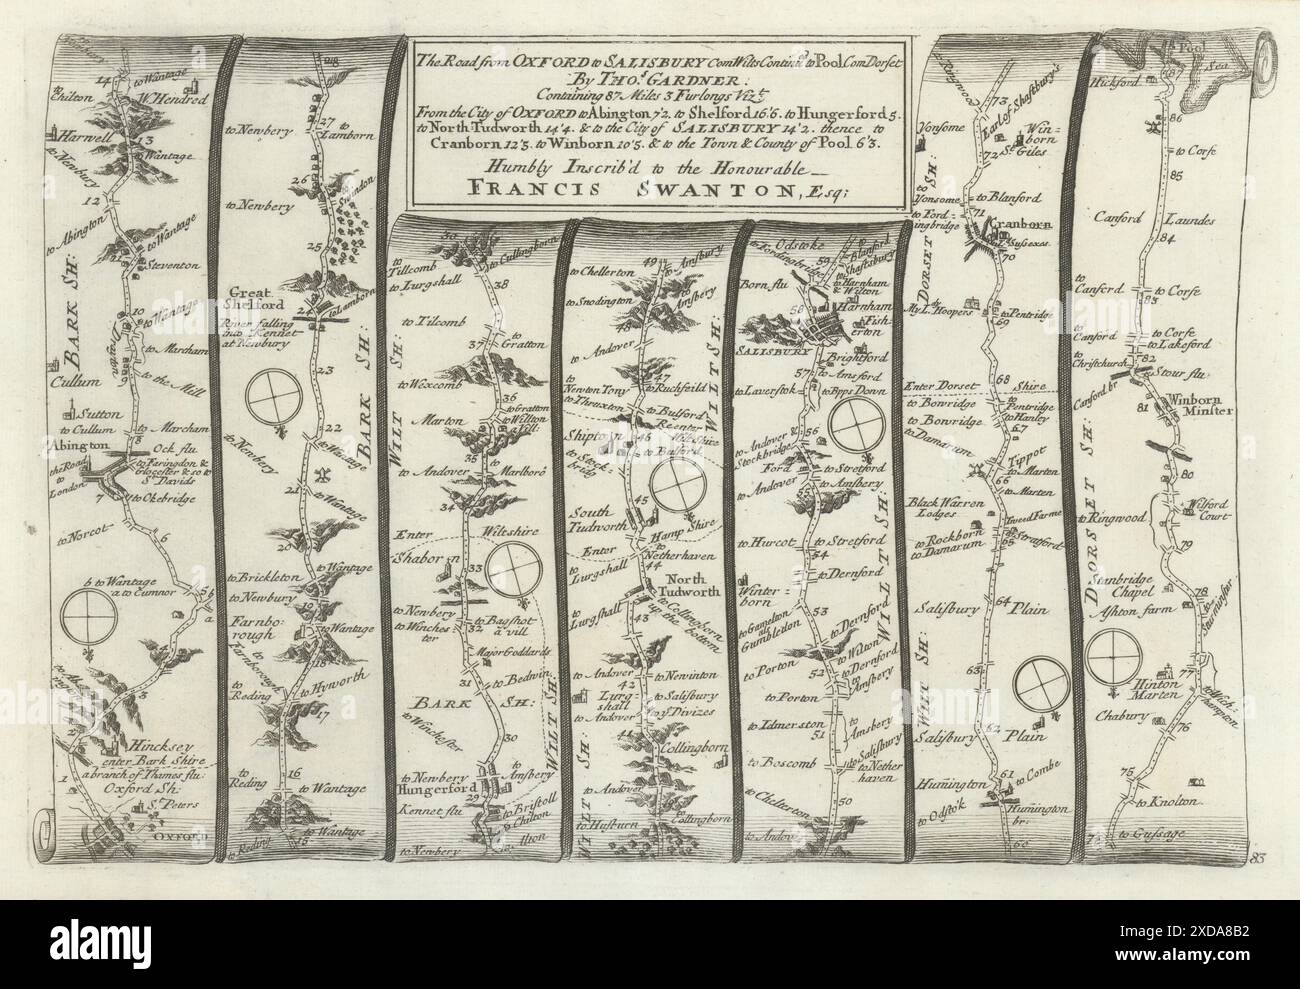 The Road from OXFORD to SALISBURY Com Wilts Continu'd to Pool Com Dorset
By THOs. GARDNER.
Containing 87 Miles 3 Furlongs Vizt.
From the City of OXFORD to Abington 7'2. to Shelford 16'6. to Hungerford 5.
to North Tudworth 14'4. & to the City of SALISBURY 14'2. thence to
Cranborn 12'5. to Winborn 10'5. & to the Town & County of Pool 6'3.
Humbly Inscrib'd to the Honourable
FRANCIS SWANTON, Esq;
14
to Wantage
to Chilton
W. Hendred
Harwell
13
to Wantage
to Newbury
12
to Abington
to Wantage
Steventon
BARK SH:
10
to Wantage
to Marcham
9
to the Mill
Cullum
Sutton
to Cullum
to Marcham
8
Abington
Ock flu
the Road to London
to Faringdon &
Glocester & so to
St. Davids
7
to Okebridge
to Norcot
6
b to Wantage
a to Cumnor
5
b
a
4
3
Hincksey
enter Bark Shire
a branch of Thames flu:
1
Oxford Sh:
St. Peters
OXFORD
28
27
to Newbery
to Lamborn
26
to Newbery
25
Great
Shelford
24
to Lamborn
River falling
into Kennet
at Newbury
23
BARK SH:
22
to Newbery
to Wantage
21
to Wantage
20
to Brickleton
to Wantage
to Newbury
19
Farnbo-
rough
to Wantage
to Farnborough
18
to Reding
to Hyworth
17
16
to Reding
to Wantage
to Wantage
to Reding
15
30
to Cullingborn
to Tillcomb
to Lurgshall
38
to Tilcomb
37
to Gratton
WILT SH:
to Wexcomb
36
to Gratton
to Willton
a Vill:
Marton
35
to Andover
to Marlboro
34
Enter
Wiltshire
Shaborn
33
to Newbery
to Winches-
ter
to Bagshot
a vill
32
Major Goddards
31
to Bedwin
BARK SH:
WILT SH:
to Winchester
30
to Newbery
to Amsbery
Hungerford
29
Kennet flu
to Bristoll
to Chilton
to Newbery
Alton
49
to Amsbury
to Chellerton
to Snodington
to Amsbery
48
to Andover
47
to Newton Tony
to Ruchfeild
to Thruxton
to Bulford
Reenter
Wiltshire
WILTSH:
Shipton
46
to Bulford
to Stock-
brig
45
South
Tudworth
Hamp Shire
Enter
to Netherhaven
to Lurgshall
44
North
Tudworth
to Lurgshall
to Collingborn
up the bottom
43
to Andover
to Newinton
42
Lurg-
shall
to Salisbury
to Andover
to ye Divizes
41
Collingborn
to Andover
WILT SH:
to Husburn
to Collingborn
Odstoke
to Fordingbridge
59
to Blanford
to Shaftsbury
Born flu
to Harnham
& Wilton
58
Harnham
Fish-
erton
SALISBURY
Brightford
57
to Amsford
to Laverstok
to Bpps Down
to Andover &
Stockbridge
56
Ford
to Stretford
to Andover
to Amsbery
55
to Hurcot
to Stretford
54
to Dernford
Winter-
born
53
to Gamelton
als Gumbleton
to Dernford
WILT SH:
to Wilton
to Porton
to Dernford
52
to Amsbery
to Porton
to Idmerston
to Amsbery
51
to Salisbury
to Boscomb
to Nether
haven
50
to Chelterton
to Andover
to Ringwood
73
Earl of Shaftsbury's
Vonsome
72
Win-
born
St. Giles
to Vonsome
to Blanford
to Ford-
ingbridge
71
Cranborn
E. of Sussexs
70
DORSET SH:
My Ld. Hoopers
to Pentridge
69
68
Enter Dorset
Shire
to Bowridge
to Pentridge
to Hanley
to Bowridge
67
to Damarum
Tippot
to Marten
66
to Marten
Black Warren
Lodges
Tweed Farme
to Rockborn
65
Stratford
to Damarum
64
Salisbury
Plain
WILT SH:
63
62
Salisbury
Plain
Humington
61
to Combe
to Odstok
Humington
br.
60
Pool
Sea
87
Hickford
86
to Corfe
85
Canford
Laundes
84
to Canford
to Corfe
83
to Canford
to Corfe
to Lakeford
to Christchurch
82
Stour flu
Canford br
81
Winborn
Minster
80
DORSET SH:
to Ringwood
Wilford
Court
79
Stanbridge
Chapel
78
Ashton farm
to Sturmister
Hinton
Marten
77
to Wichhampton
Chabury
76
75
to Knolton
74
to Gussage
83
alamy
Image ID: 2XDA8B2
www.alamy.com